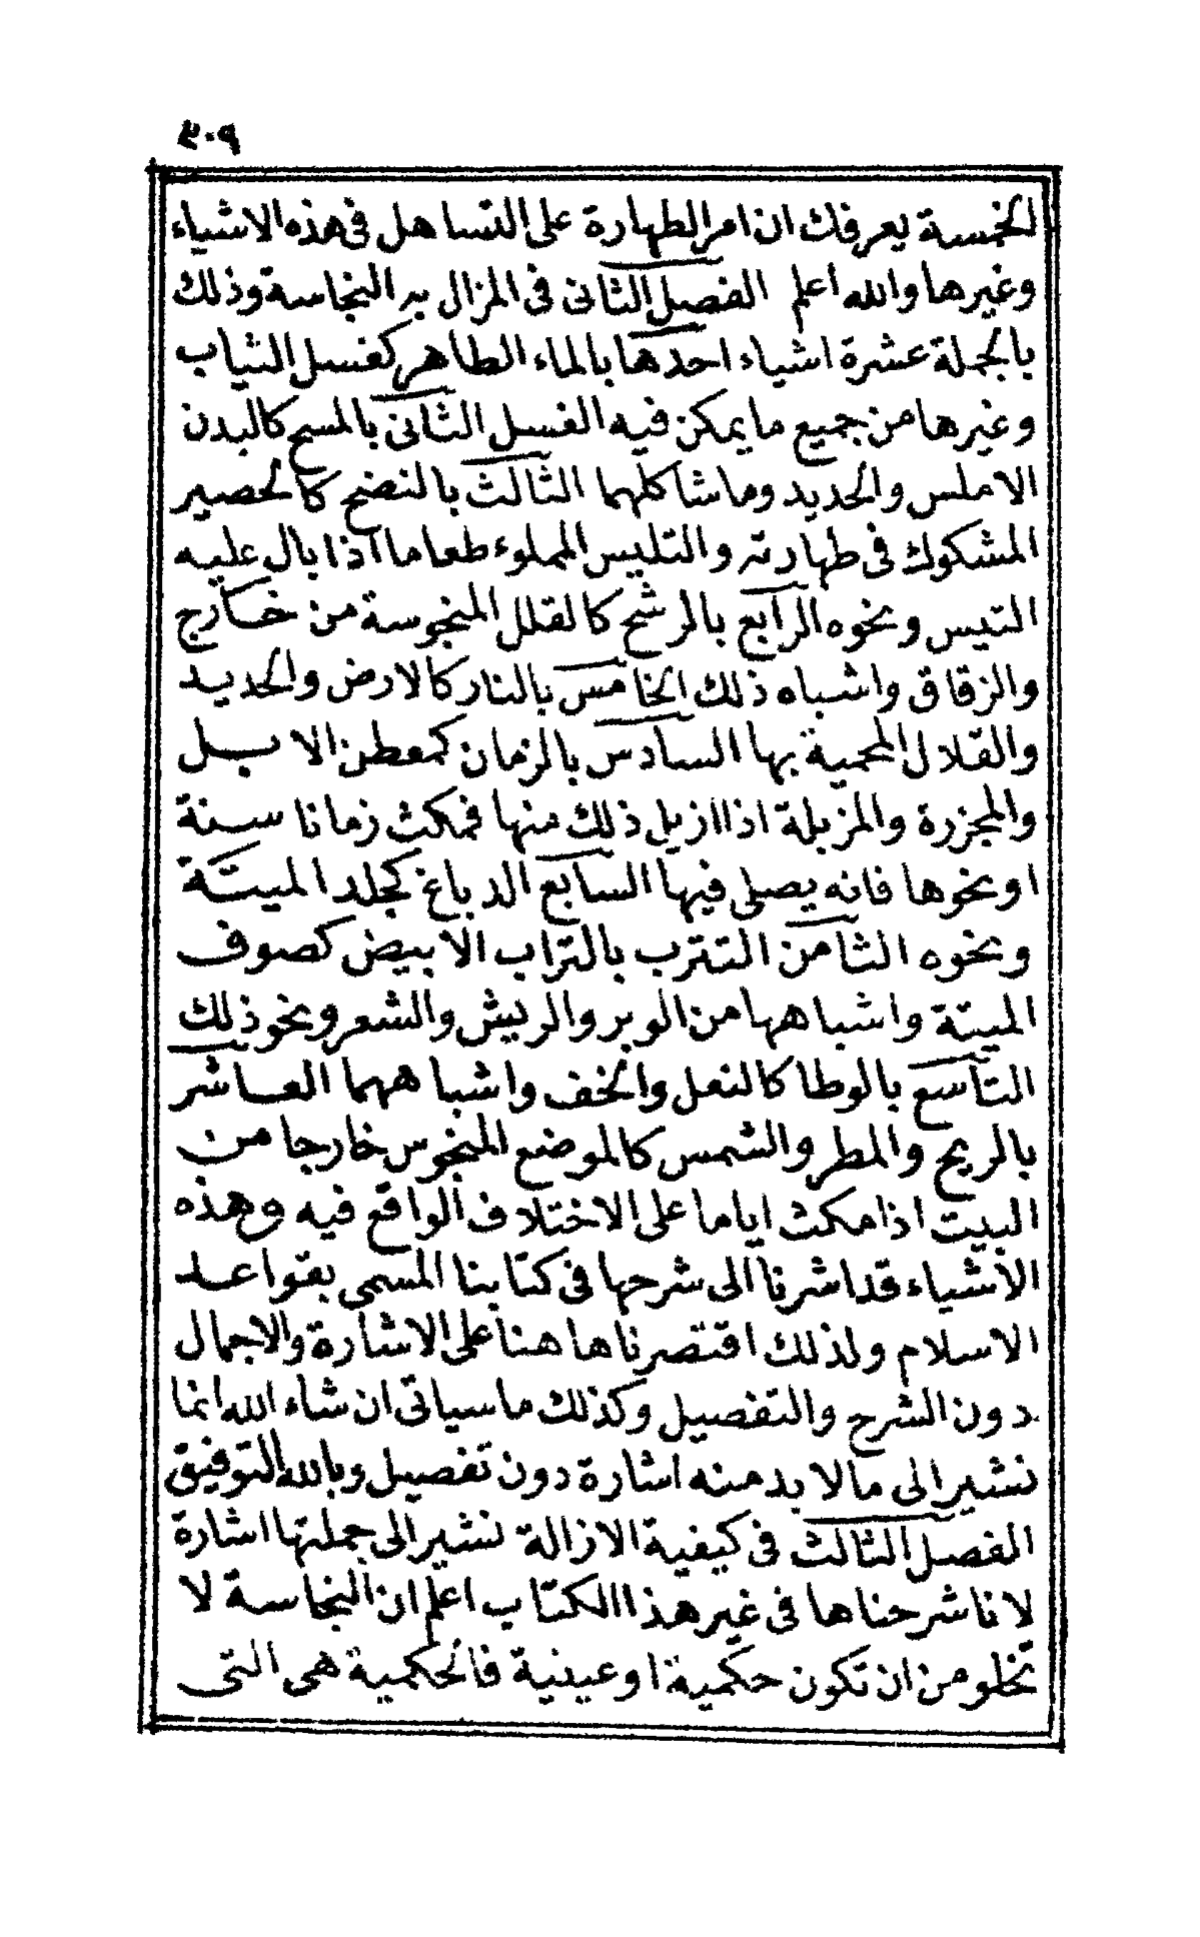 ٤٠٩
الخمسة يعرفك ان امر الطهارة على التساهل فى هذه الاشياء
وغيرها والله اعلم الفصل الثانى فى المزال به النجاسة وذلك
بالجملة عشرة اشياء احدها بالماء الطاهر كغسل الثياب
وغيرها من جميع ما يمكن فيه الغسل الثانى بالمسح كالبدن
الاملس والحديد وما شاكلهما الثالث بالنضح كالحصير
المشكوك فى طهارته والتليس المملوء طعاما اذا بال عليه
التيس ونحوه الرابع بالرشح كالقلل المنجوسة من خارج
والزقاق واشباه ذلك الخامس بالنار كالارض والحديد
والقلال المحمية بها السادس بالزمان كمعطن الابل
والمجزرة والمزبلة اذا ازيل ذلك منها فمكث زمانا سنة
او نحوها فانه يصلى فيها السابع الدباغ كجلد الميتة
ونحوه الثامن التترب بالتراب الابيض كصوف
الميتة واشباهها من الوبر والريش والشعر ونحو ذلك
التاسع بالوطا كالنعل والخف واشباههما العاشر
بالريح والمطر والشمس كالموضع المنجوس خارجا من
البيت اذا مكث اياما على الاختلاف الواقع فيه وهذه
الاشياء قد اشرنا الى شرحها فى كتابنا المسمى بقواعد
الاسلام ولذلك اقتصرنا ها هنا على الاشارة والاجمال
دون الشرح والتفصيل وكذلك ما سياتى ان شاء الله انما
نشير الى ما لا بد منه اشارة دون تفصيل وبالله التوفيق
الفصل الثالث فى كيفية الازالة نشير الى جملتها اشارة
لانا شرحناها فى غير هذا الكتاب اعلم ان النجاسة لا
تخلو من ان تكون حكمية او عينية فالحكمية هى التى